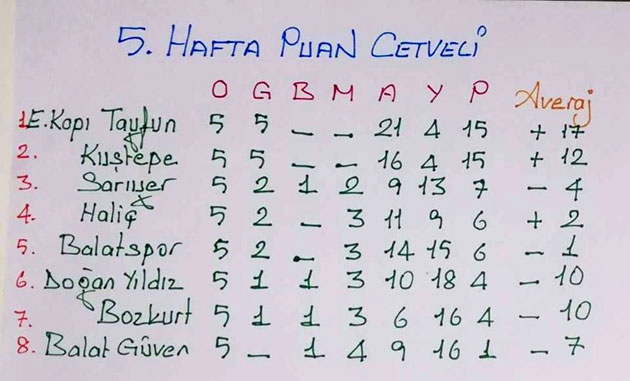 5. HAFTA PUAN CETVELİ
O G B M A Y P Averaj
1. E. Kapı Tayfun 5 5 - - 21 4 15 + 17
2. Kuştepe 5 5 - - 16 4 15 + 12
3. Sarıyer 5 2 1 2 9 13 7 - 4
4. Haliç 5 2 - 3 11 9 6 + 2
5. Balatspor 5 2 - 3 14 15 6 - 1
6. Doğan Yıldız 5 1 1 3 10 18 4 - 10
7. Bozkurt 5 1 1 3 6 16 4 - 10
8. Balat Güven 5 - 1 4 9 16 1 - 7